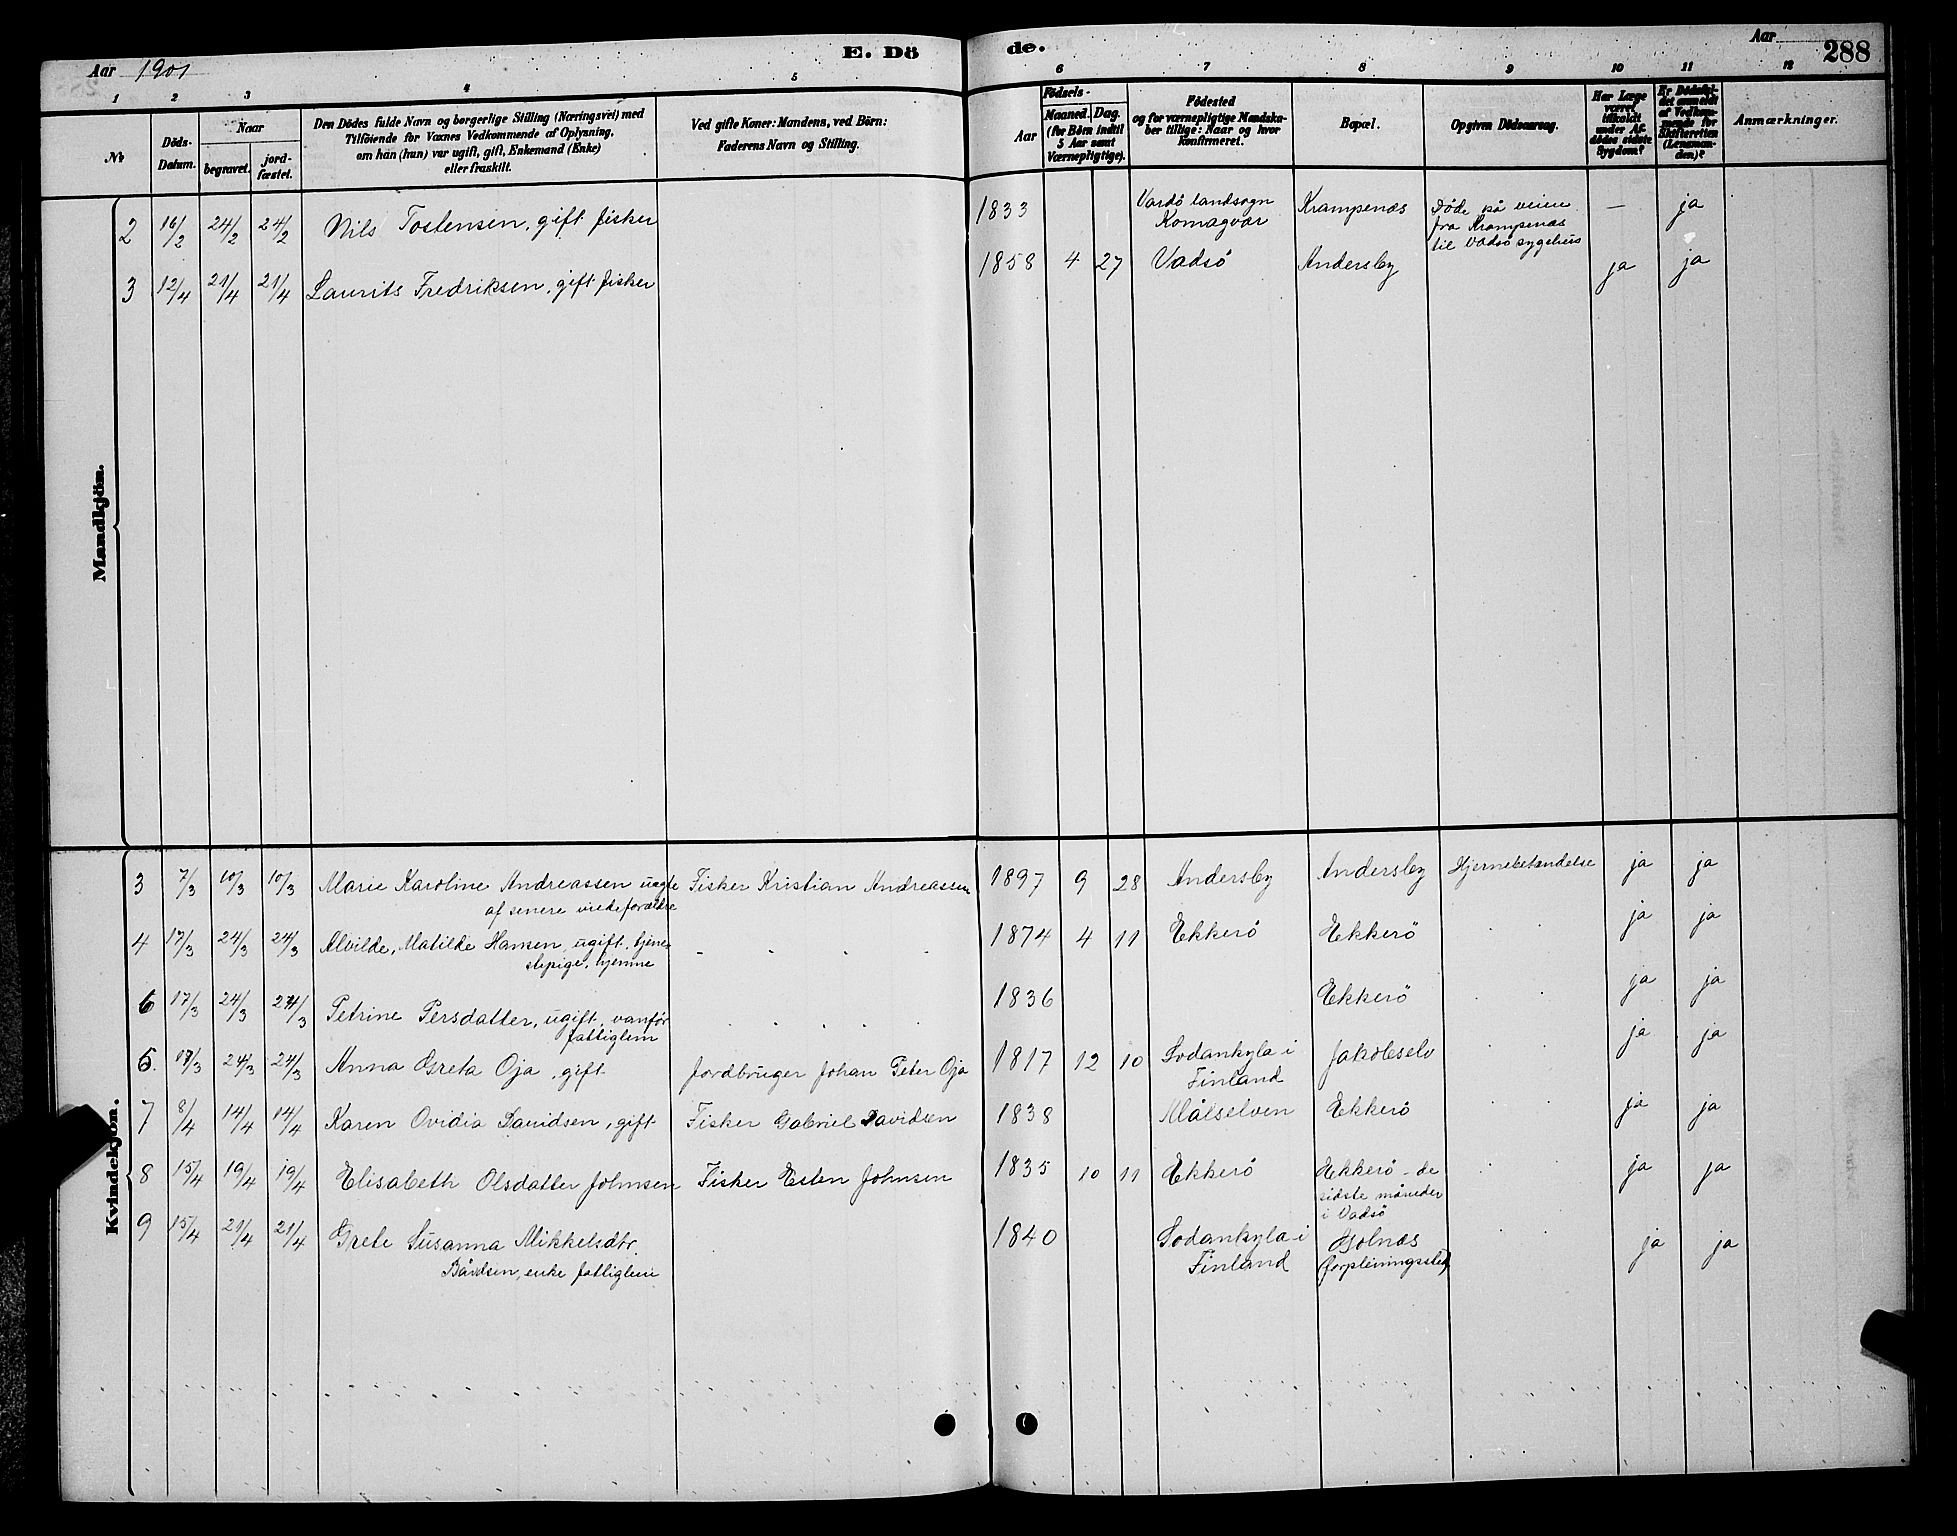 Aar 1901 E. Döde. Aar 288
1 2 3 4 5 6 7 8 9 10 11 12
No
Döds-Datum.
Naar
begravet.
jord-fæstet.
Den Dödes fulde Navn og borgerlige Stilling (Næringsvei) med
Tilföiende for Voxnes Vedkommende af Oplysning,
om han (hun) var ugift, gift, Enkemand (Enke)
eller fraskilt.
Ved gifte Koner: Mandens, ved Börn:
Faderens Navn og Stilling.
Födsels-
Aar
Maaned. Dag.
(for Börn indtil
5 Aar samt
Værnepligtige).
Födested
og for værnepligtige Mandska-
ber tillige: Naar og hvor
konfirmeret.
Bopæl.
Opgiven Dödsaarsag.
Har Læge
været
tilkaldt
under Af-
dödes sidste
Sygdom?
Er Dödsfal-
det anmeldt
af Vedkom-
mende for
Skifteretten
(Lensman-
den)?
Anmærkninger.
Mandkjön.
2 16/2 24/2 24/2 Nils Tostensen, gift fisker 1833 Vardö landsogn Krampenæs Döde på veien — ja
Komagvær fra Krampenæs
til Vadsö sygehus
3 12/4 21/4 21/4 Laurits Fredriksen, gift fisker 1858 4 27 Vadsö Andersby ja ja
Kvindekjön.
3 7/3 10/3 10/3 Marie Karoline Andreassen uægte Fisker Kristian Andreassen 1897 9 28 Andersby Andersby Hjernebetændelse ja ja
af senere viedeforældre
4 17/3 24/3 24/3 Alvilde, Matilde Hansen, ugift, tjene- 1874 4 11 Ekkerö Ekkerö ja ja
stepige, hjemme
6 17/3 24/3 24/3 Petrine Persdatter, ugift, vanför 1836 Ekkerö ja ja
fattiglem
5. 17/3 24/3 24/3 Anna Greta Oja, gift Jordbruger Johan Peter Oja 1817 12 10 Sodankyla i Jakobselv ja ja
Finland
7 8/4 14/4 14/4 Karen Ovidia Davidsen, gift Fisker Gabriel Davidsen 1838 Målselven Ekkerö ja ja
8 15/4 19/4 19/4 Elisabeth Olsdatter Johnsen Fisker Esten Johnsen 1835 10 11 Ekkerö Ekkerö - de ja ja
sidste måneder
i Vadsö
9 15/4 21/4 21/4 Grete Susanna Mikkelsdtr. 1840 Sodankyla i Golnæs ja ja
Båvdsen, enke fattiglem Finland (forpleiningssted)